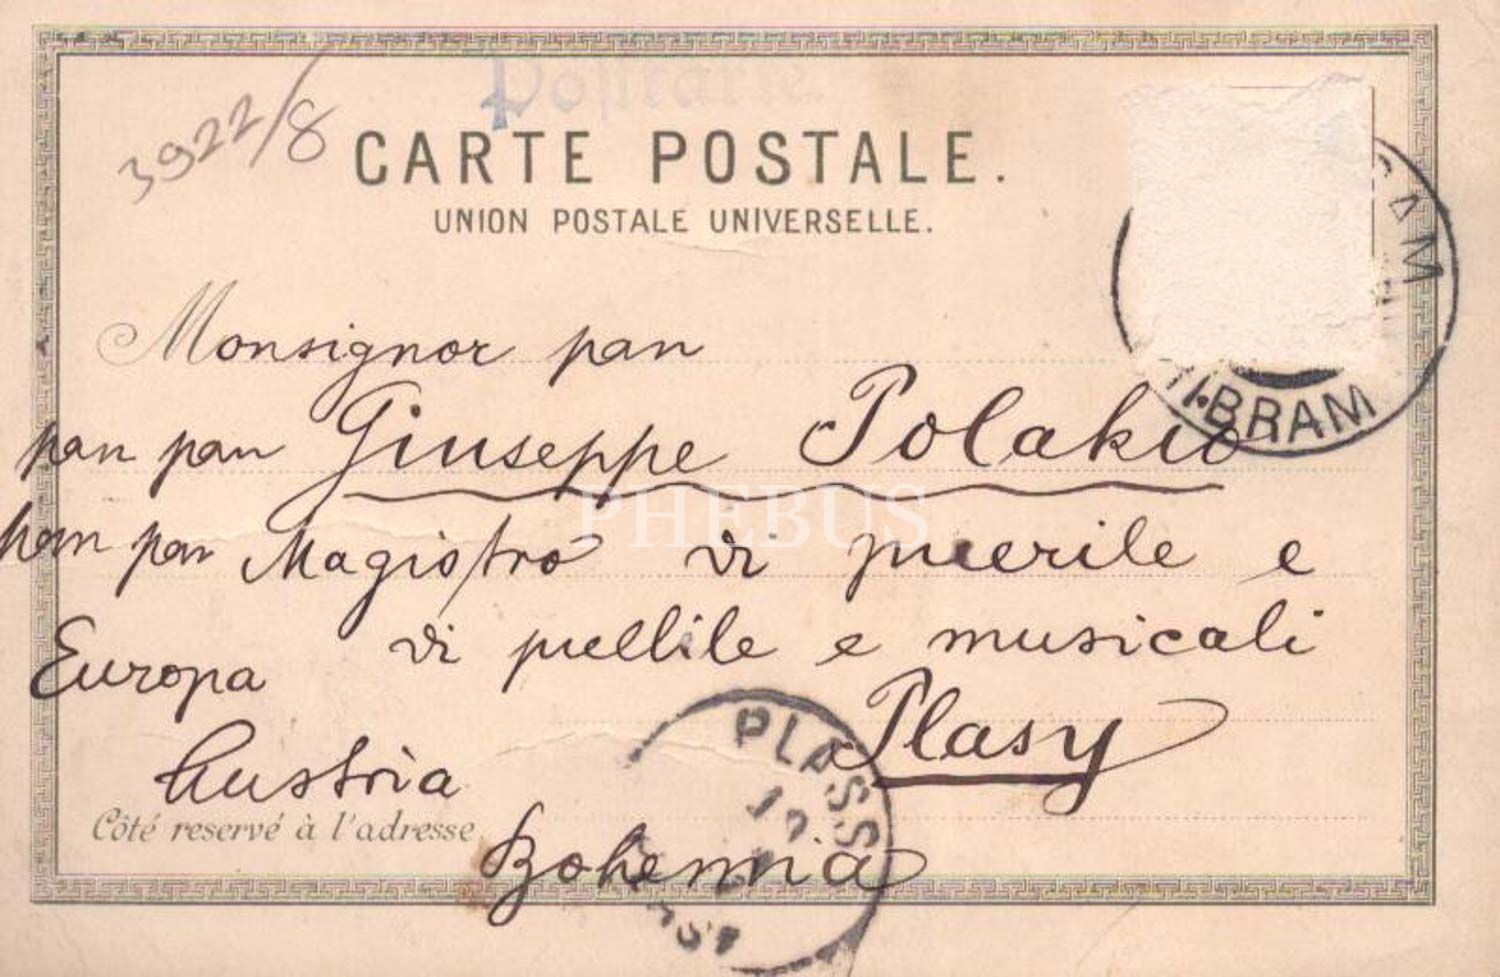 3922/8
Postkarte
CARTE POSTALE.
UNION POSTALE UNIVERSELLE.
Monsignor pan
pan pan Giuseppe Polakio
pan pan Magistro di puerile e
di puellile e musicali
Europa
Plasy
Austria
Côté reservé à l'adresse
Bohemia
I.BRAM
PLASS
PHEBUS